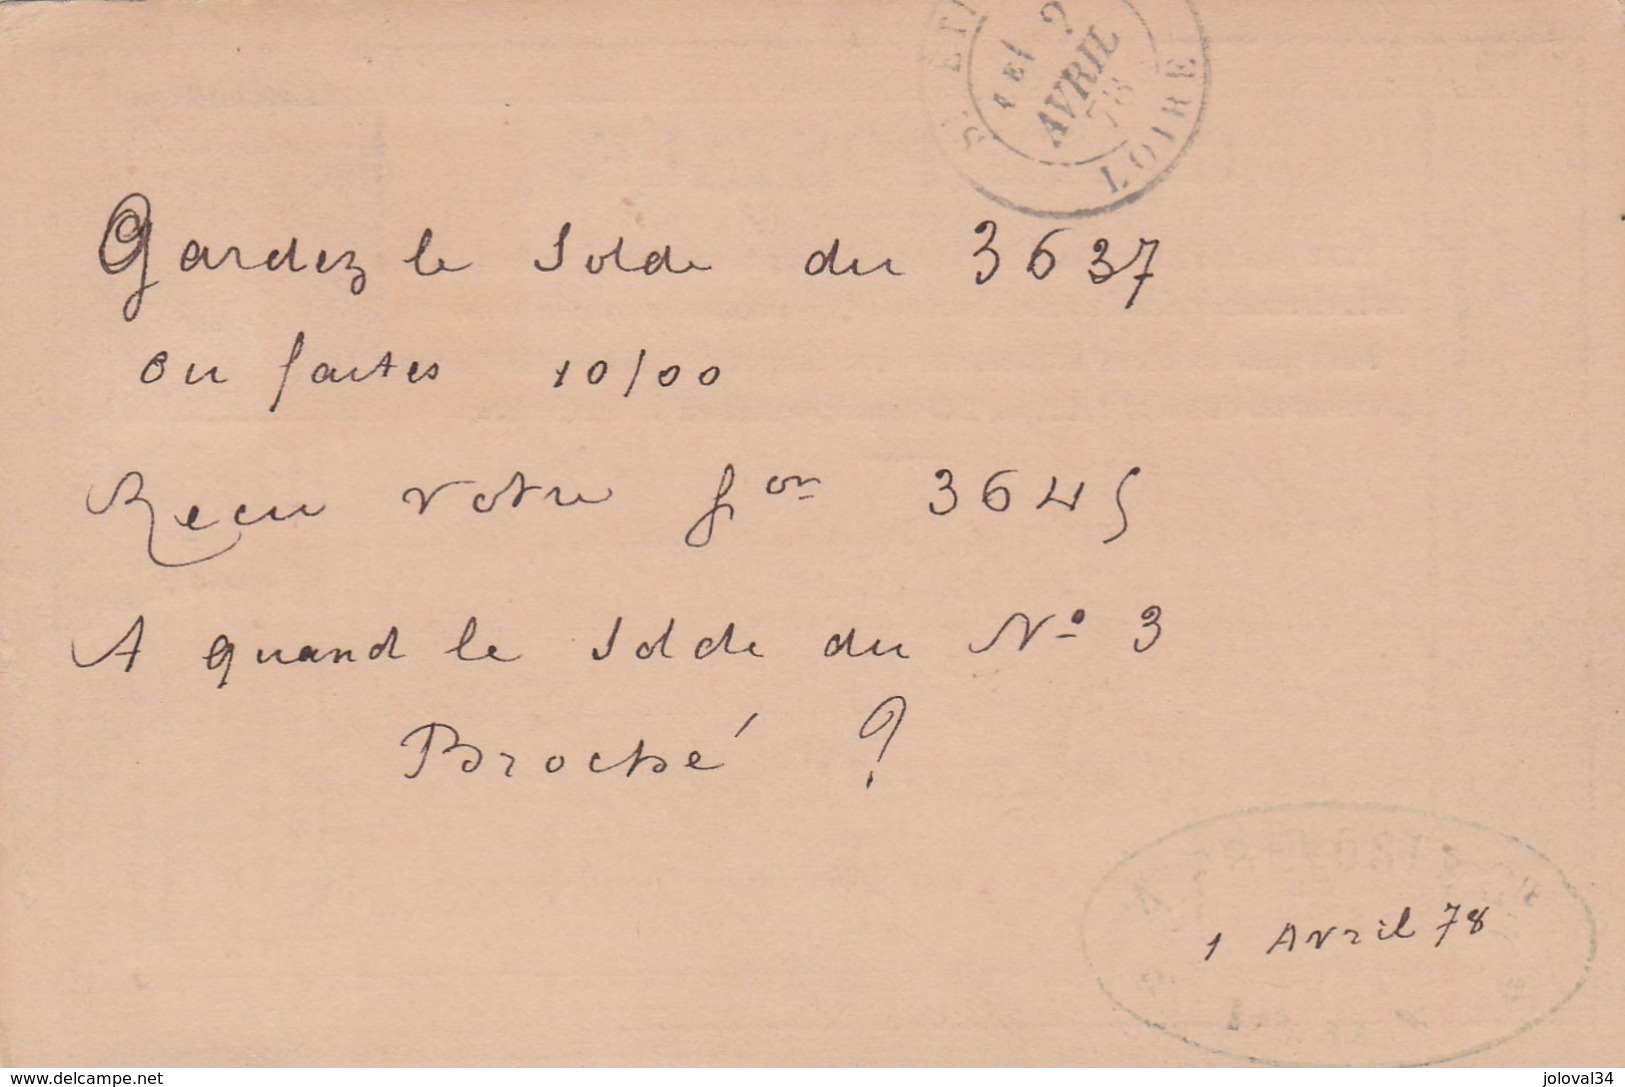 ST ETI
1E
2
AVRIL
78
LOIRE
Gardez le Solde du 3637
ou faites 10/00
Recu votre fon 3645
A quand le solde du No 3
Broché ?
1 Avril 78
www.delcampe.net
joloval34